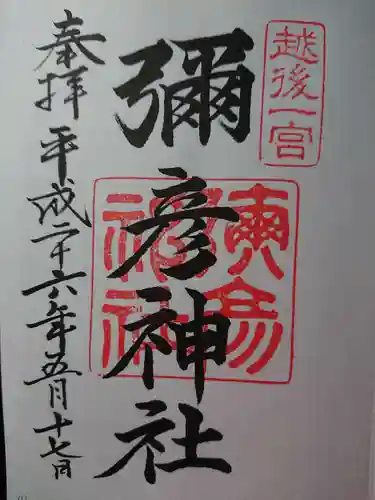 越後一宮
彌彦神社
奉拝
平成二十六年五月十七日